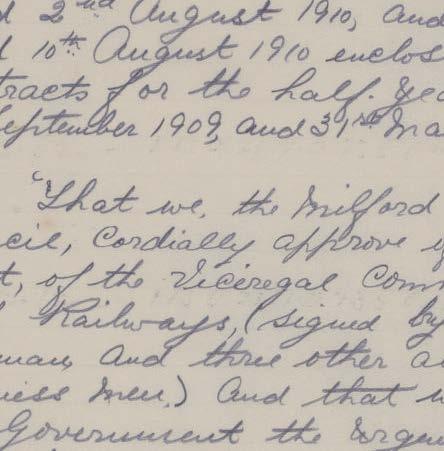 d 2nd August 1910, and
d 10th August 1910 enclos
tracts for the half. yea
September 1909, and 31st Ma
"That we, the Milford
cil, cordially approve o
t, of the Viceregal Comm
Railways, (signed by
man, and three other a
ness men.) and that w
Government the urgen